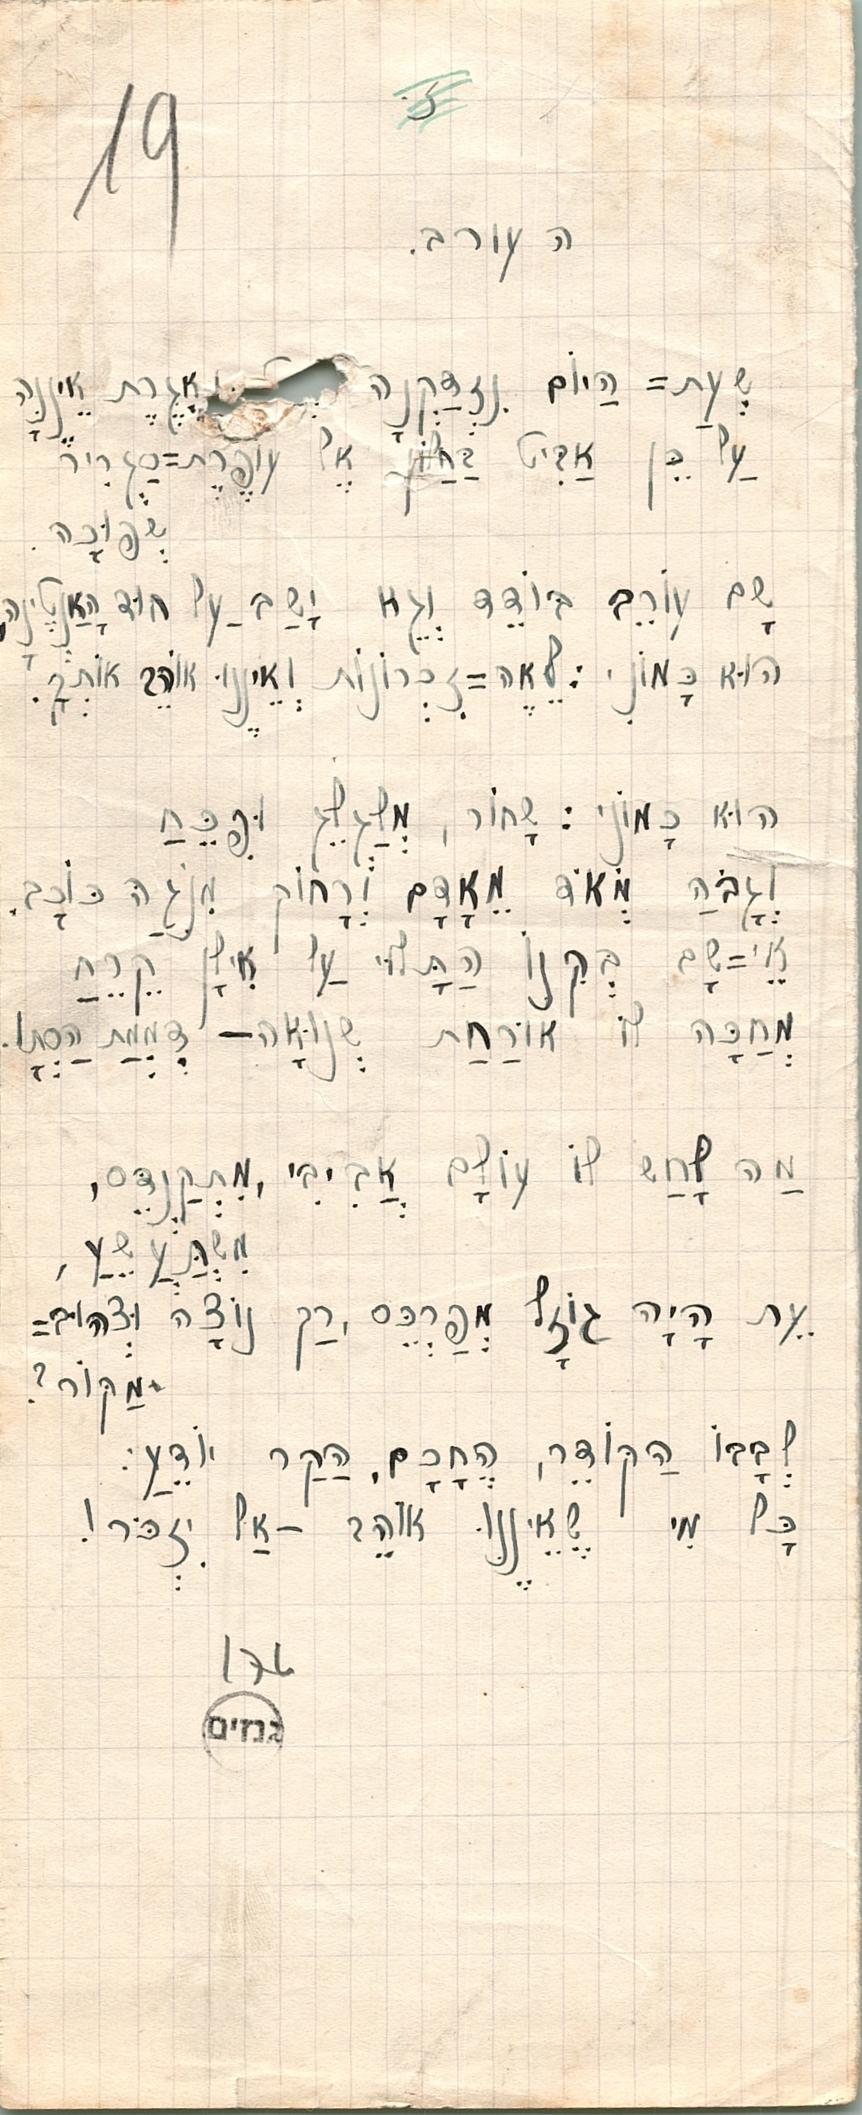 19
ז.
ה עורב.
שְׁעַת= הַיוֹם נִזְדַקְנָה וְאִגֶרֶת אֵינֶנָּה
עַל כֵּן אַבִּיט בַּחַלּוֹן אֶל עוֹפֶרֶת=סַגְרִיר
שְׁפוּכָה.
שָׁם עוֹרֵב בּוֹדֵד וְגֵא יָשַׁב עַל חוּד הָאַנְטֶנָה,
הוּא כָּמוֹנִי: לֵאֶה=זִכְרוֹנוֹת וְאֵינֶנּוּ אוֹהֵב אוֹתְךָ.
הוּא כָּמוֹנִי: שָׁחוֹר, מְלַגְלֵג וּפִכֵּחַ
וְגָבֹהַּ מְאֹד מֵאָדָם וְרָחוֹק מִנֹגַהּ כּוֹכָב.
אֵי=שָׁם בְּקִנוֹ הַתָּלוּי עַל אִילָן קֵרֵחַ
מְחַכָּה לוֹ אוֹרַחַת שְׂנוּאָה— דִמְמַת הַסְתָו.
מַה לָחַשׁ לוֹ עוֹלָם אֲבִיבִי, מִתְקַנְדֵס,
מִשְׁתַּעֲשֵׁעַ,
עֵת הָיָה גוֹזָל מְפַרְכֵּס, רַק נוֹצָה וּצְהוֹב=
מַקּוֹר?
לְבָבוֹ הַקּוֹדֵר, הֶחָכָם, הַקַר יוֹדֵעַ:
כָּל מִי שֶׁאֵינֶנּוּ אוֹהֵב — אַל יִזְכֹּר!
גנזים